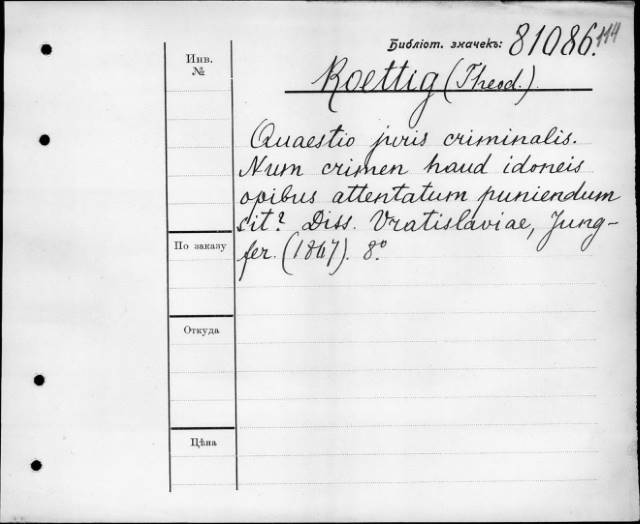 Библіот. значекъ: 81086.114
Инв. №
Roettig (Theod.)
Quaestio juris criminalis.
Num crimen haud idoneis
opibus attentatum puniendum
sit? Diss. Vratislaviae, Jung-
fer. (1867). 8°
По заказу
Откуда
Цѣна